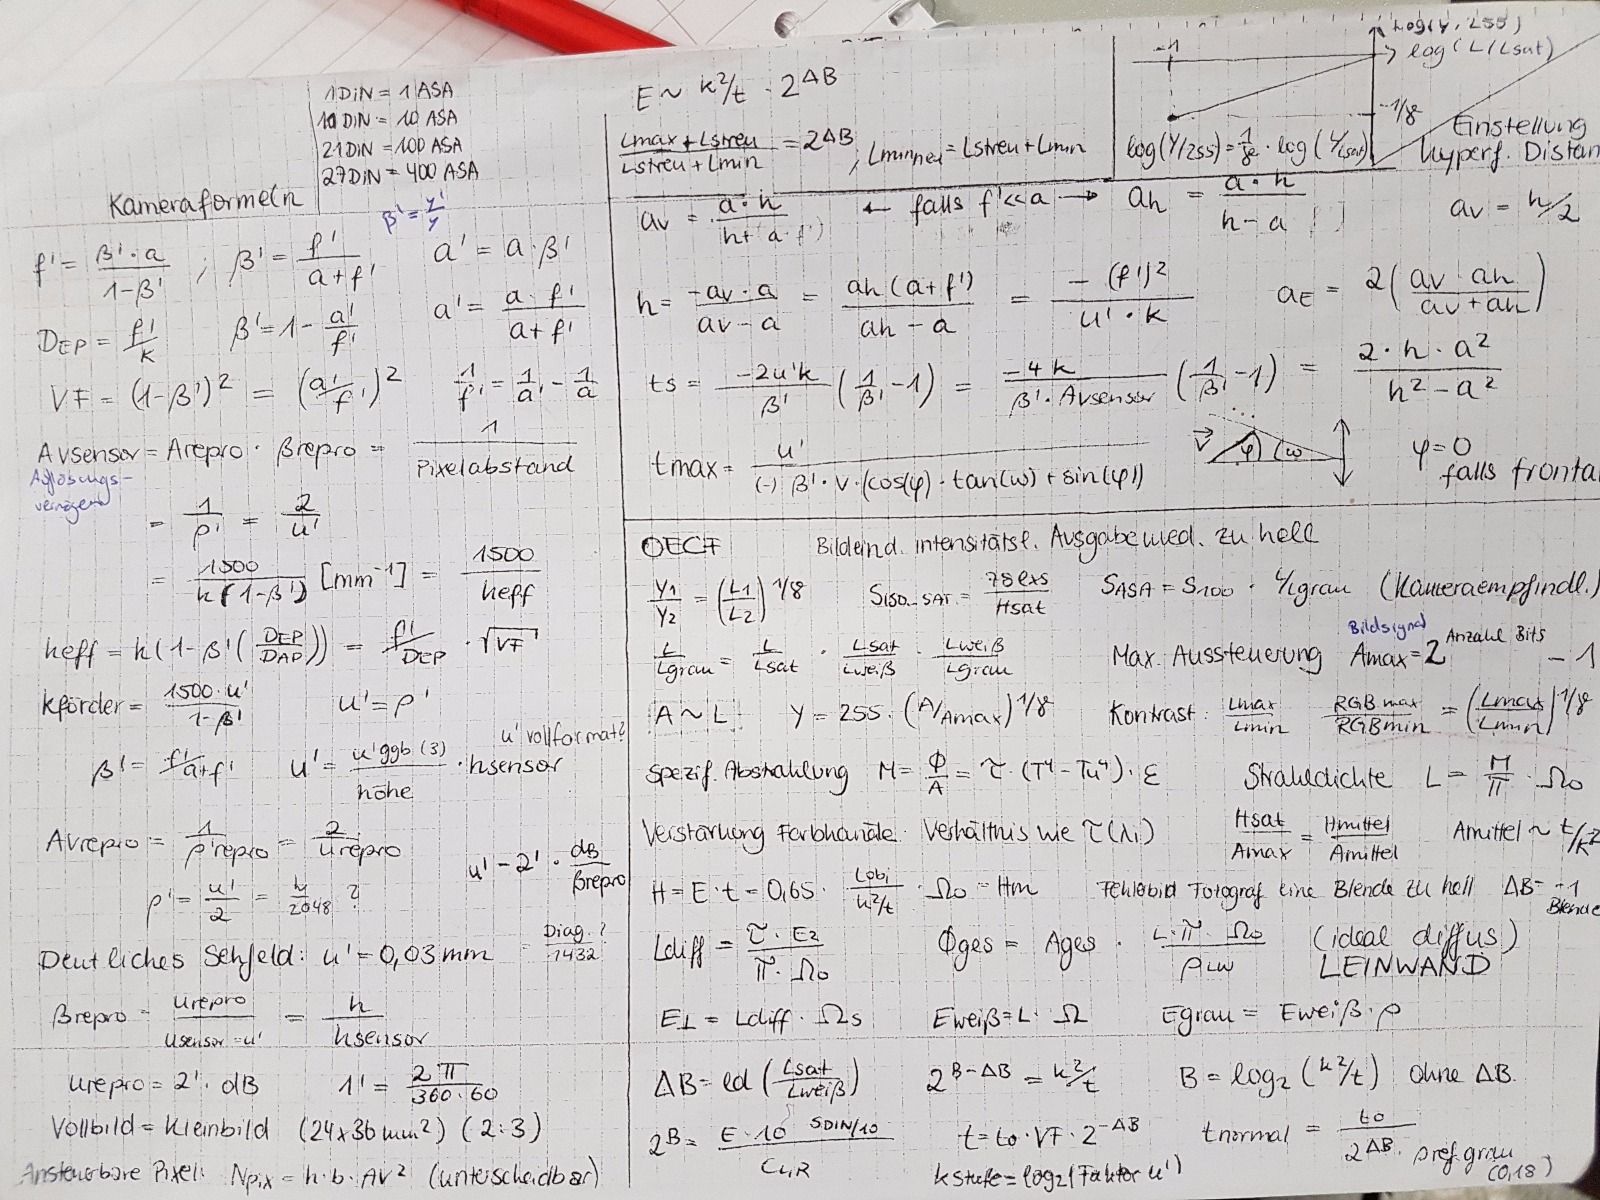 1 DiN = 1 ASA
11 DiN = 10 ASA
21 DiN = 100 ASA
27 DiN = 400 ASA
Kameraformeln
β' = y'/y
f' = β'·a / 1-β' ; β' = f' / a+f' a' = a·β'
D_EP = f'/k β' = 1 - a'/f' a' = a·f' / a+f'
VF = (1-β')² = (a'/f')² 1/f' = 1/a' - 1/a
Avsensor = Arepro · βrepro = 1 / Pixelabstand
Auflösungs-
vermögen
= 1/ρ' = 2/u'
= 1500 / k(1-β') [mm⁻¹] = 1500 / keff
keff = k(1-β'(DEP/DAP)) = f'/DEP · √VF'
kförder = 1500·u' / 1-β' u' = ρ'
u' vollformat?
β' = f'/a+f' u' = u'ggb(3) / höhe · hsensor
Avrepro = 1/ρ'repro = 2/urepro
u' = 2' · dB/βrepro
ρ' = u'/2 = h/2048 ?
Deutliches Sehfeld: u' = 0,03mm = Diag.?/1432
βrepro = urepro / usensor = u' = h / hsensor
urepro = 2' · dB 1' = 2π / 360·60
Vollbild = Kleinbild (24x36mm²) (2:3)
Ansteuerbare Pixel: Npix = h·b·AV² (unterscheidbar)
E ~ k²/t · 2^ΔB
Lmax + Lstreu / Lstreu + Lmin = 2^ΔB , Lminneu = Lstreu + Lmin
log(Y/255)
log(L/Lsat)
-1
-1/γ
log(Y/255) = 1/γ · log(L/Lsat)
Einstellung
hyperf. Distan
av = a·h / h+(a·f') ← falls f' << a → ah = a·h / h-a av = h/2
h = -av·a / av-a = ah(a+f') / ah-a = -(f')² / u'·k aE = 2(av·ah / av+ah)
ts = -2u'k / β' (1/β' - 1) = -4k / β'·Avsensor (1/β' - 1) = 2·h·a² / h²-a²
tmax = u' / (-)β'·v·(cos(φ)·tan(ω)+sin(φ)) V φ ω φ=0
falls fronta
OECF Bildeind. intensitätsl. Ausgabemed. zu hell
Y1/Y2 = (L1/L2)^1/γ SISO-SAT. = 78 lxs / Hsat SASA = S100 · L/Lgrau (Kameraempfindl.)
L/Lgrau = L/Lsat · Lsat/Lweiß · Lweiß/Lgrau Max. Aussteuerung Bildsignal Amax = 2^Anzahl Bits - 1
A ~ L Y = 255·(A/Amax)^1/γ Kontrast: Lmax/Lmin RGBmax/RGBmin = (Lmax/Lmin)^1/γ
Spezif. Abstrahlung M = Φ/A = τ·(T⁴-Tu⁴)·ε Strahldichte L = M/π · Ω₀
Verstärkung Farbkanäle Verhältnis wie τ(λi) Hsat/Amax = Hmittel/Amittel Amittel ~ t/k²
H = E·t = 0,65 · Lobj / k²/t · Ω₀ = Hm Fehlebild Fotograf eine Blende zu hell ΔB = -1 Blende
Ldiff = τ·E2 / π·Ω₀ Φges = Ages · L·π·Ω₀ / ρLW (ideal diffus)
LEINWAND
E⊥ = Ldiff · Ωs Eweiß = L·Ω Egrau = Eweiß·ρ
ΔB = ld(Lsat/Lweiß) 2^B-ΔB = k²/t B = log₂(k²/t) ohne ΔB.
2^B = E·10^SDIN/10 / CLIR t = t0·VF·2^-ΔB tnormal = t0 / 2^ΔB · ρref.grau
(0,18)
kstufe = log₂(Faktor u')